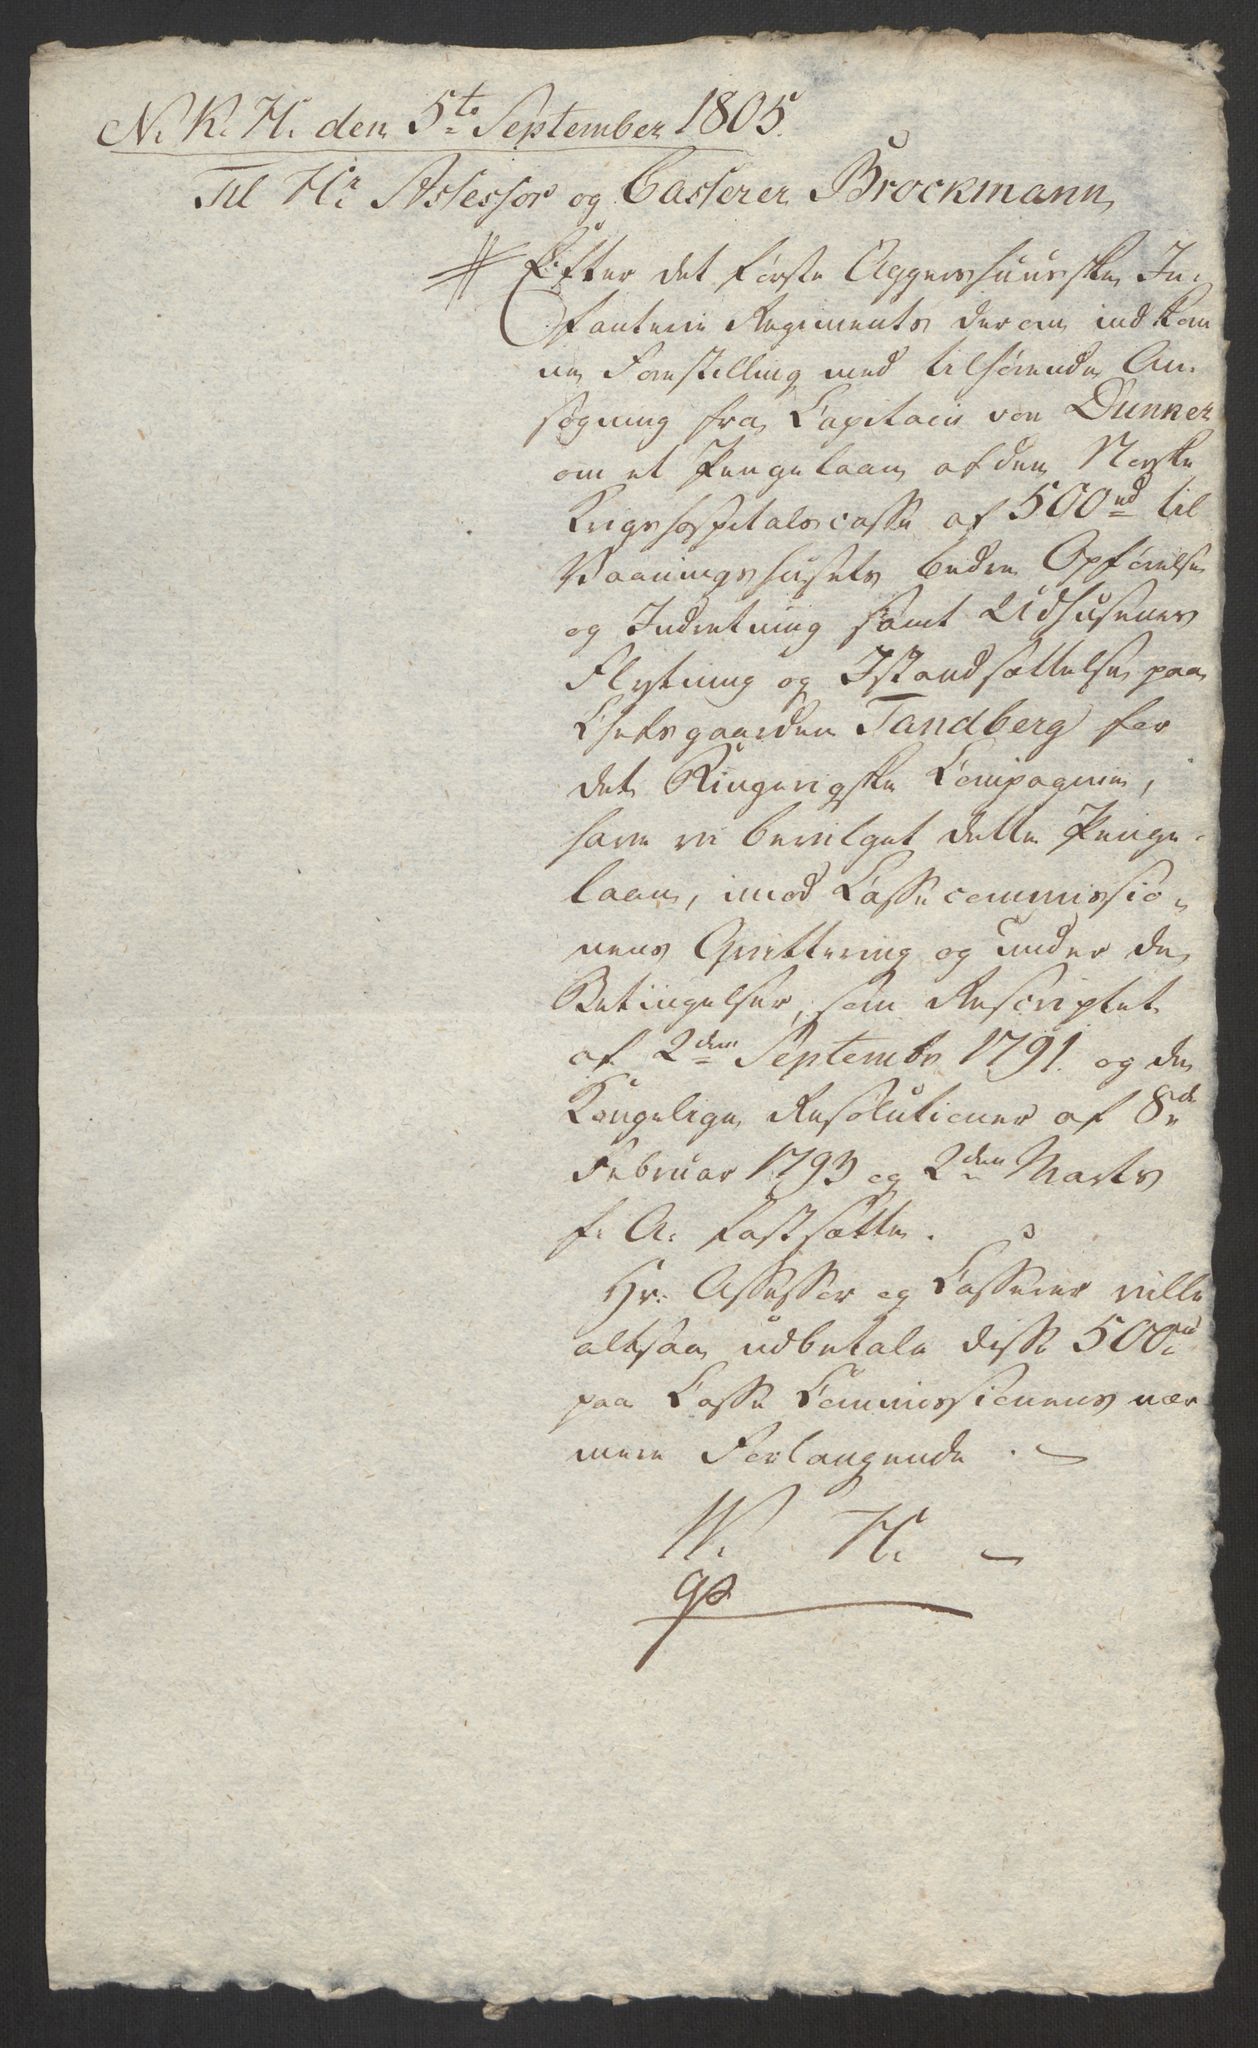 N. K. H. den 5te September 1805.
Til Hr Assessor og Casserer Brockmann
Efter det første Aggershuuske In-
fanterie Regiments derom indkom
ne Forestilling med tilhørende An-
søgning fra Capitain von Dunker
om et Pengelaan af den Norske
Krigshospitalscasse af 500 rd til
Vaaningshusets bedre Opførelse
og Indretning samt Udhusenes
Flytning og Istandsættelse paa
Chefsgaarden Tandberg for
det Ringerigske Compagnie,
have vi bevilget dette Penge-
laan, imod Cassecommissio-
nens Qvittering og under de
Betingelser, som Rescriptet
af 2den Septembr 1791. og de
Kongelige Resolutioner af 8de
Februar 1793 og 2den Marts
f. A. fastsætte.
Hr. Assessor og Casserer ville
altsaa udbetale disse 500 rd
paa Casse Commissionens nær
mere Forlangende.
W. H.